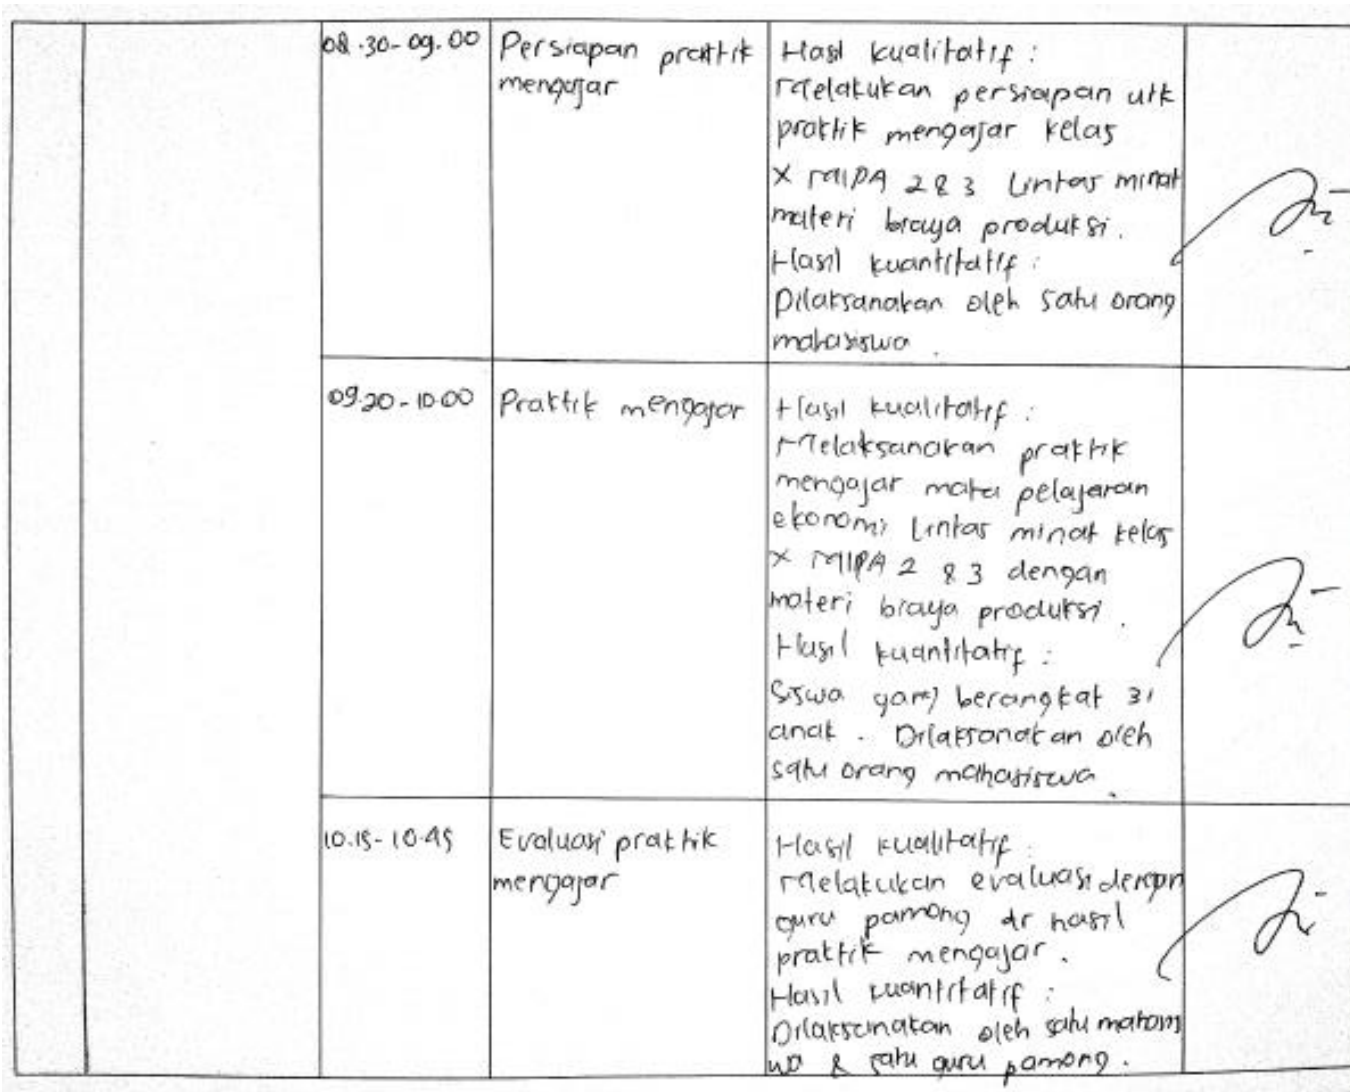 08.30-09.00
Persiapan praktik
mengajar
Hasil kualitatif :
Melakukan persiapan utk
praktik mengajar kelas
X MIPA 2 & 3 Lintas minat
materi biaya produksi.
Hasil kuantitatif :
Dilaksanakan oleh satu orang
mahasiswa.
09.20-10.00
Praktik mengajar
Hasil kualitatif :
Melaksanakan praktik
mengajar mata pelajaran
ekonomi Lintas minat kelas
X MIPA 2 & 3 dengan
materi biaya produksi.
Hasil kuantitatif :
Siswa yang berangkat 31
anak. Dilaksanakan oleh
satu orang mahasiswa.
10.15-10.45
Evaluasi praktik
mengajar
Hasil kualitatif :
Melakukan evaluasi dengan
guru pamong dr hasil
praktik mengajar.
Hasil kuantitatif :
Dilaksanakan oleh satu mahasis
wa & satu guru pamong.